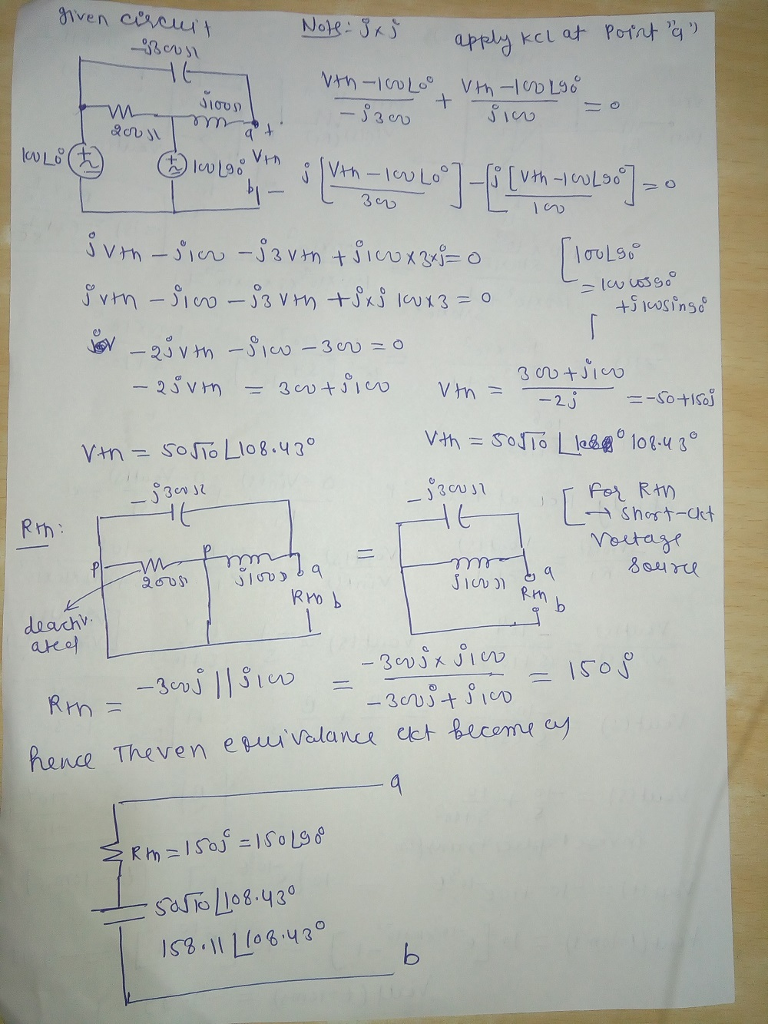 given circuit
Note: j×j apply KCL at Point "a"
-j300Ω
200Ω
j100Ω
a +
100∠0°
100∠90°
Vth
b -
Vth-100∠0° / -j300 + Vth-100∠90° / j100 = 0
j[Vth-100∠0° / 300] - [j[Vth-100∠90°] / 100] = 0
jVth - j100 - j3Vth + j100×3×j = 0
jVth - j100 - j3Vth + j×j 100×3 = 0
-2jVth - j100 - 300 = 0
-2jVth = 300 + j100
[100∠90°
= 100cos90°
+j100sin90°
Vth = 300+j100 / -2j = -50+150j
Vth = 50√10 ∠108.43°
Vth = 50√10 ∠108.43°
Rth:
-j300Ω
P
200Ω
P
j100Ω
a
Rth b
deactiv.
ated
=
-j300Ω
j100Ω
a
Rth
b
[For Rth
→ Short-ckt
Voltage
Source
Rth = -300j || j100 = -300j×j100 / -300j+j100 = 150j
hence Theven equivalance ckt become as
a
Rth = 150j = 150∠90
50√10 ∠108.43°
158.11 ∠108.43°
b